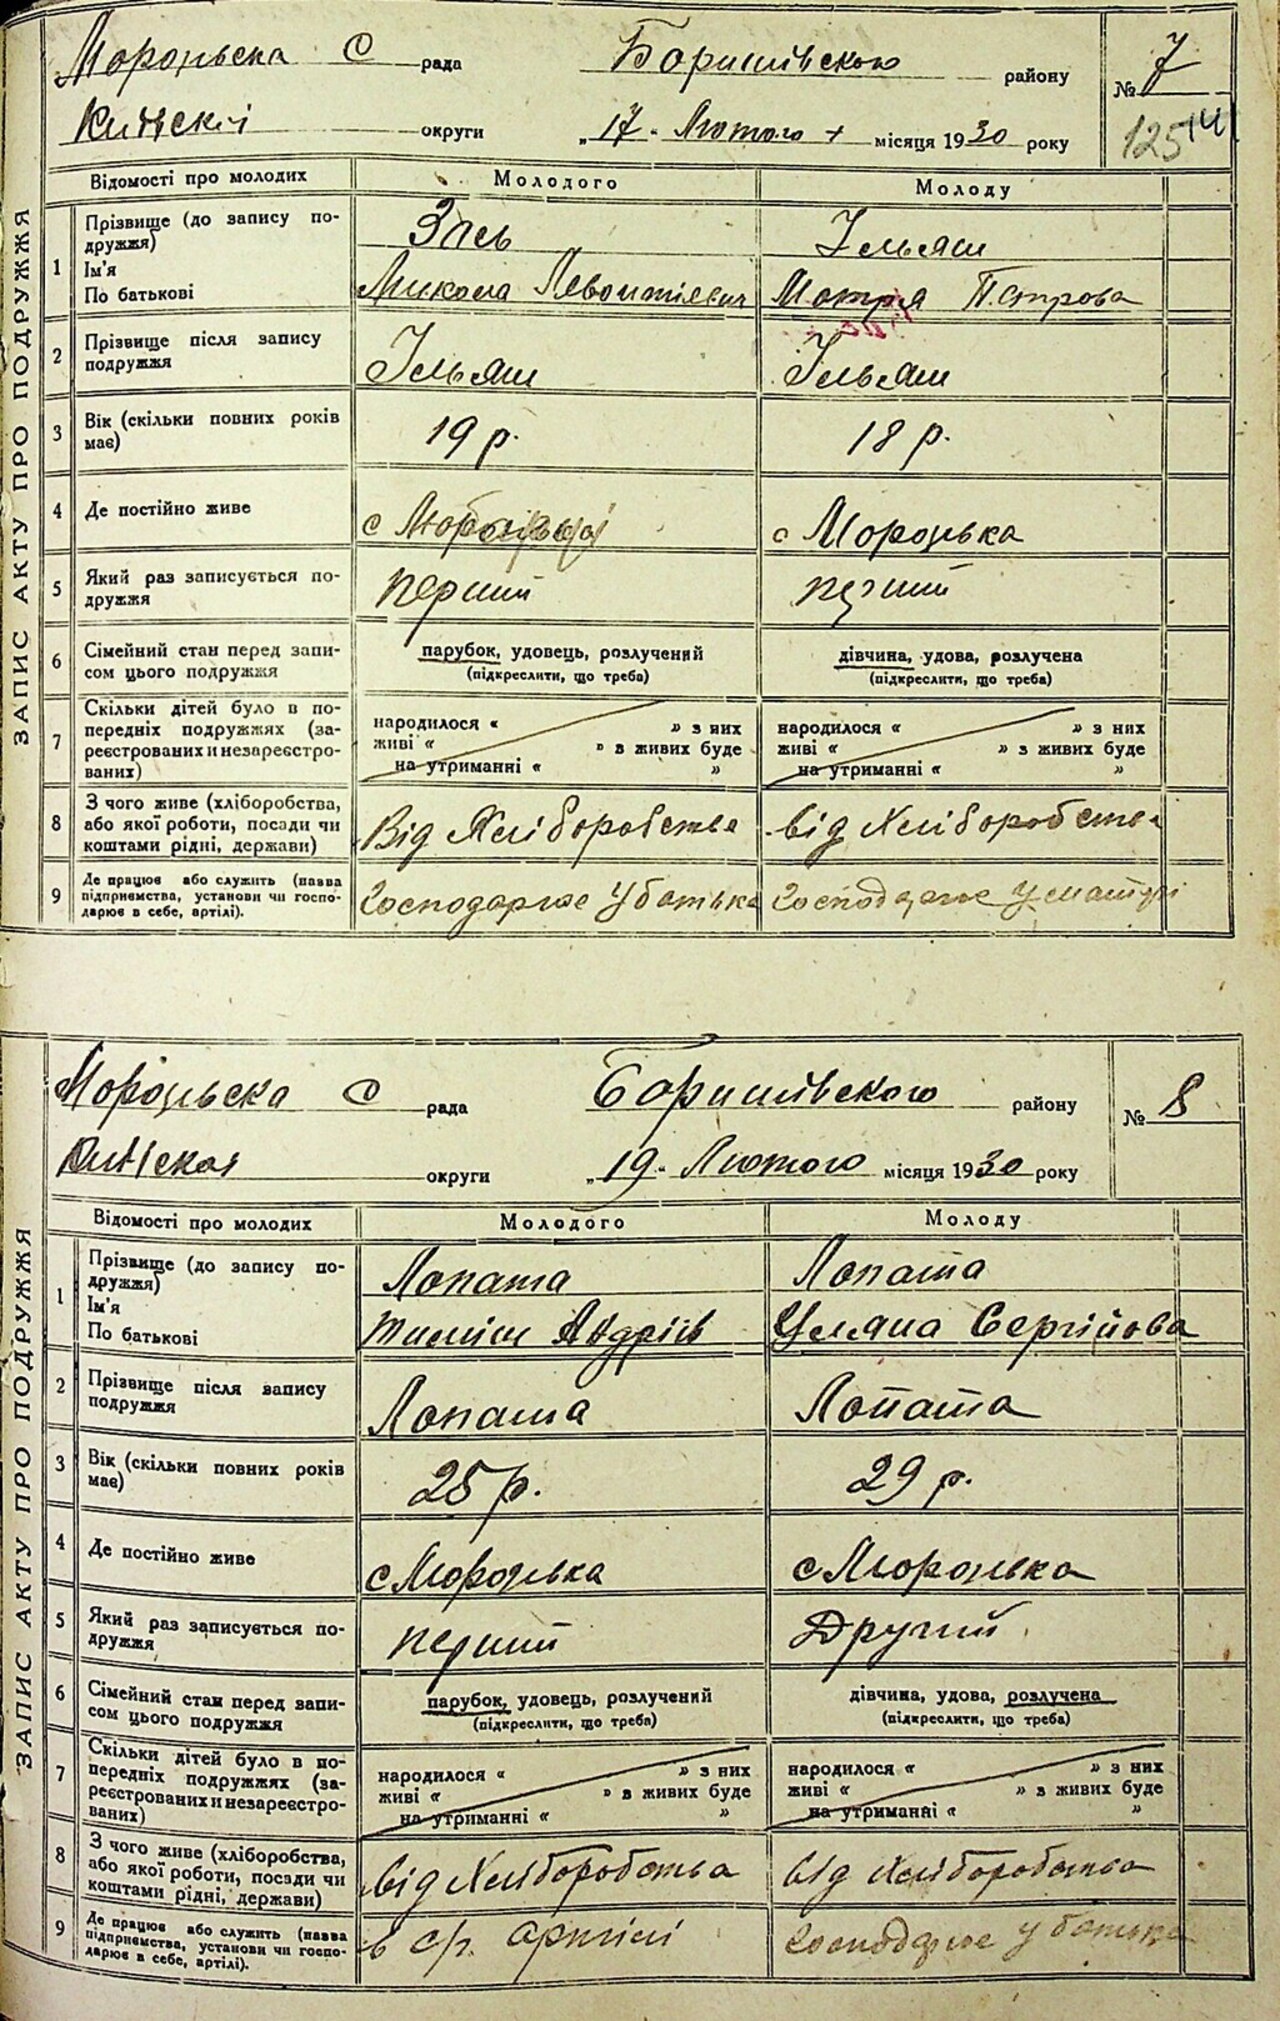 ЗАПИС АКТУ ПРО ПОДРУЖЖЯ
Мороцьска С рада Боришівського району № 7
Київскої округи „17" Лютого місяця 1930 року 125 14
Відомості про молодих Молодого Молоду
1 Прізвище (до запису по-
дружжя) Зась Ільяш
Ім'я
По батькові Микола Левонтієвич Мотря Петрова
2 Прізвище після запису
подружжя Ільяш Ільяш
3 Вік (скільки повних років
має) 19 р. 18 р.
4 Де постійно живе с с Мороцька
5 Який раз записується по-
дружжя перший перший
6 Сімейний стан перед запи-
сом цього подружжя
парубок, удовець, розлучений дівчина, удова, розлучена
(підкреслити, що треба) (підкреслити, що треба)
7 Скільки дітей було в по-
передніх подружжях (за-
реєстрованих и незареєстро-
ваних)
народилося « » з них народилося « » з них
живі « » з живих буде живі « » з живих буде
на утриманні « » на утриманні « »
8 З чого живе (хліборобства,
або якої роботи, посади чи
коштами рідні, держави) Від Хліборобства від Хліборобства
9 Де працює або служить (назва
підприємства, установи чи госпо-
дарює в себе, артілі). Господарює У батька Господарює У матері
ЗАПИС АКТУ ПРО ПОДРУЖЖЯ
Мороцьска С рада Боришівського району № 8
округи „19" Лютого місяця 1930 року
Відомості про молодих Молодого Молоду
1 Прізвище (до запису по-
дружжя) Лопата Лопата
Ім'я
По батькові Тиміш Андріїв Уляна Сергійова
2 Прізвище після запису
подружжя Лопата Лопата
3 Вік (скільки повних років
має) 25 р. 29 р.
4 Де постійно живе с Мороцька с Мороцька
5 Який раз записується по-
дружжя перший Другий
6 Сімейний стан перед запи-
сом цього подружжя
парубок, удовець, розлучений дівчина, удова, розлучена
(підкреслити, що треба) (підкреслити, що треба)
7 Скільки дітей було в по-
передніх подружжях (за-
реєстрованих и незареєстро-
ваних)
народилося « » з них народилося « » з них
живі « » з живих буде живі « » з живих буде
на утриманні « » на утриманні « »
8 З чого живе (хліборобства,
або якої роботи, посади чи
коштами рідні, держави) від Хліборобства від Хліборобства
9 Де працює або служить (назва
підприємства, установи чи госпо-
дарює в себе, артілі). в с/г. артілі Господарює У батька